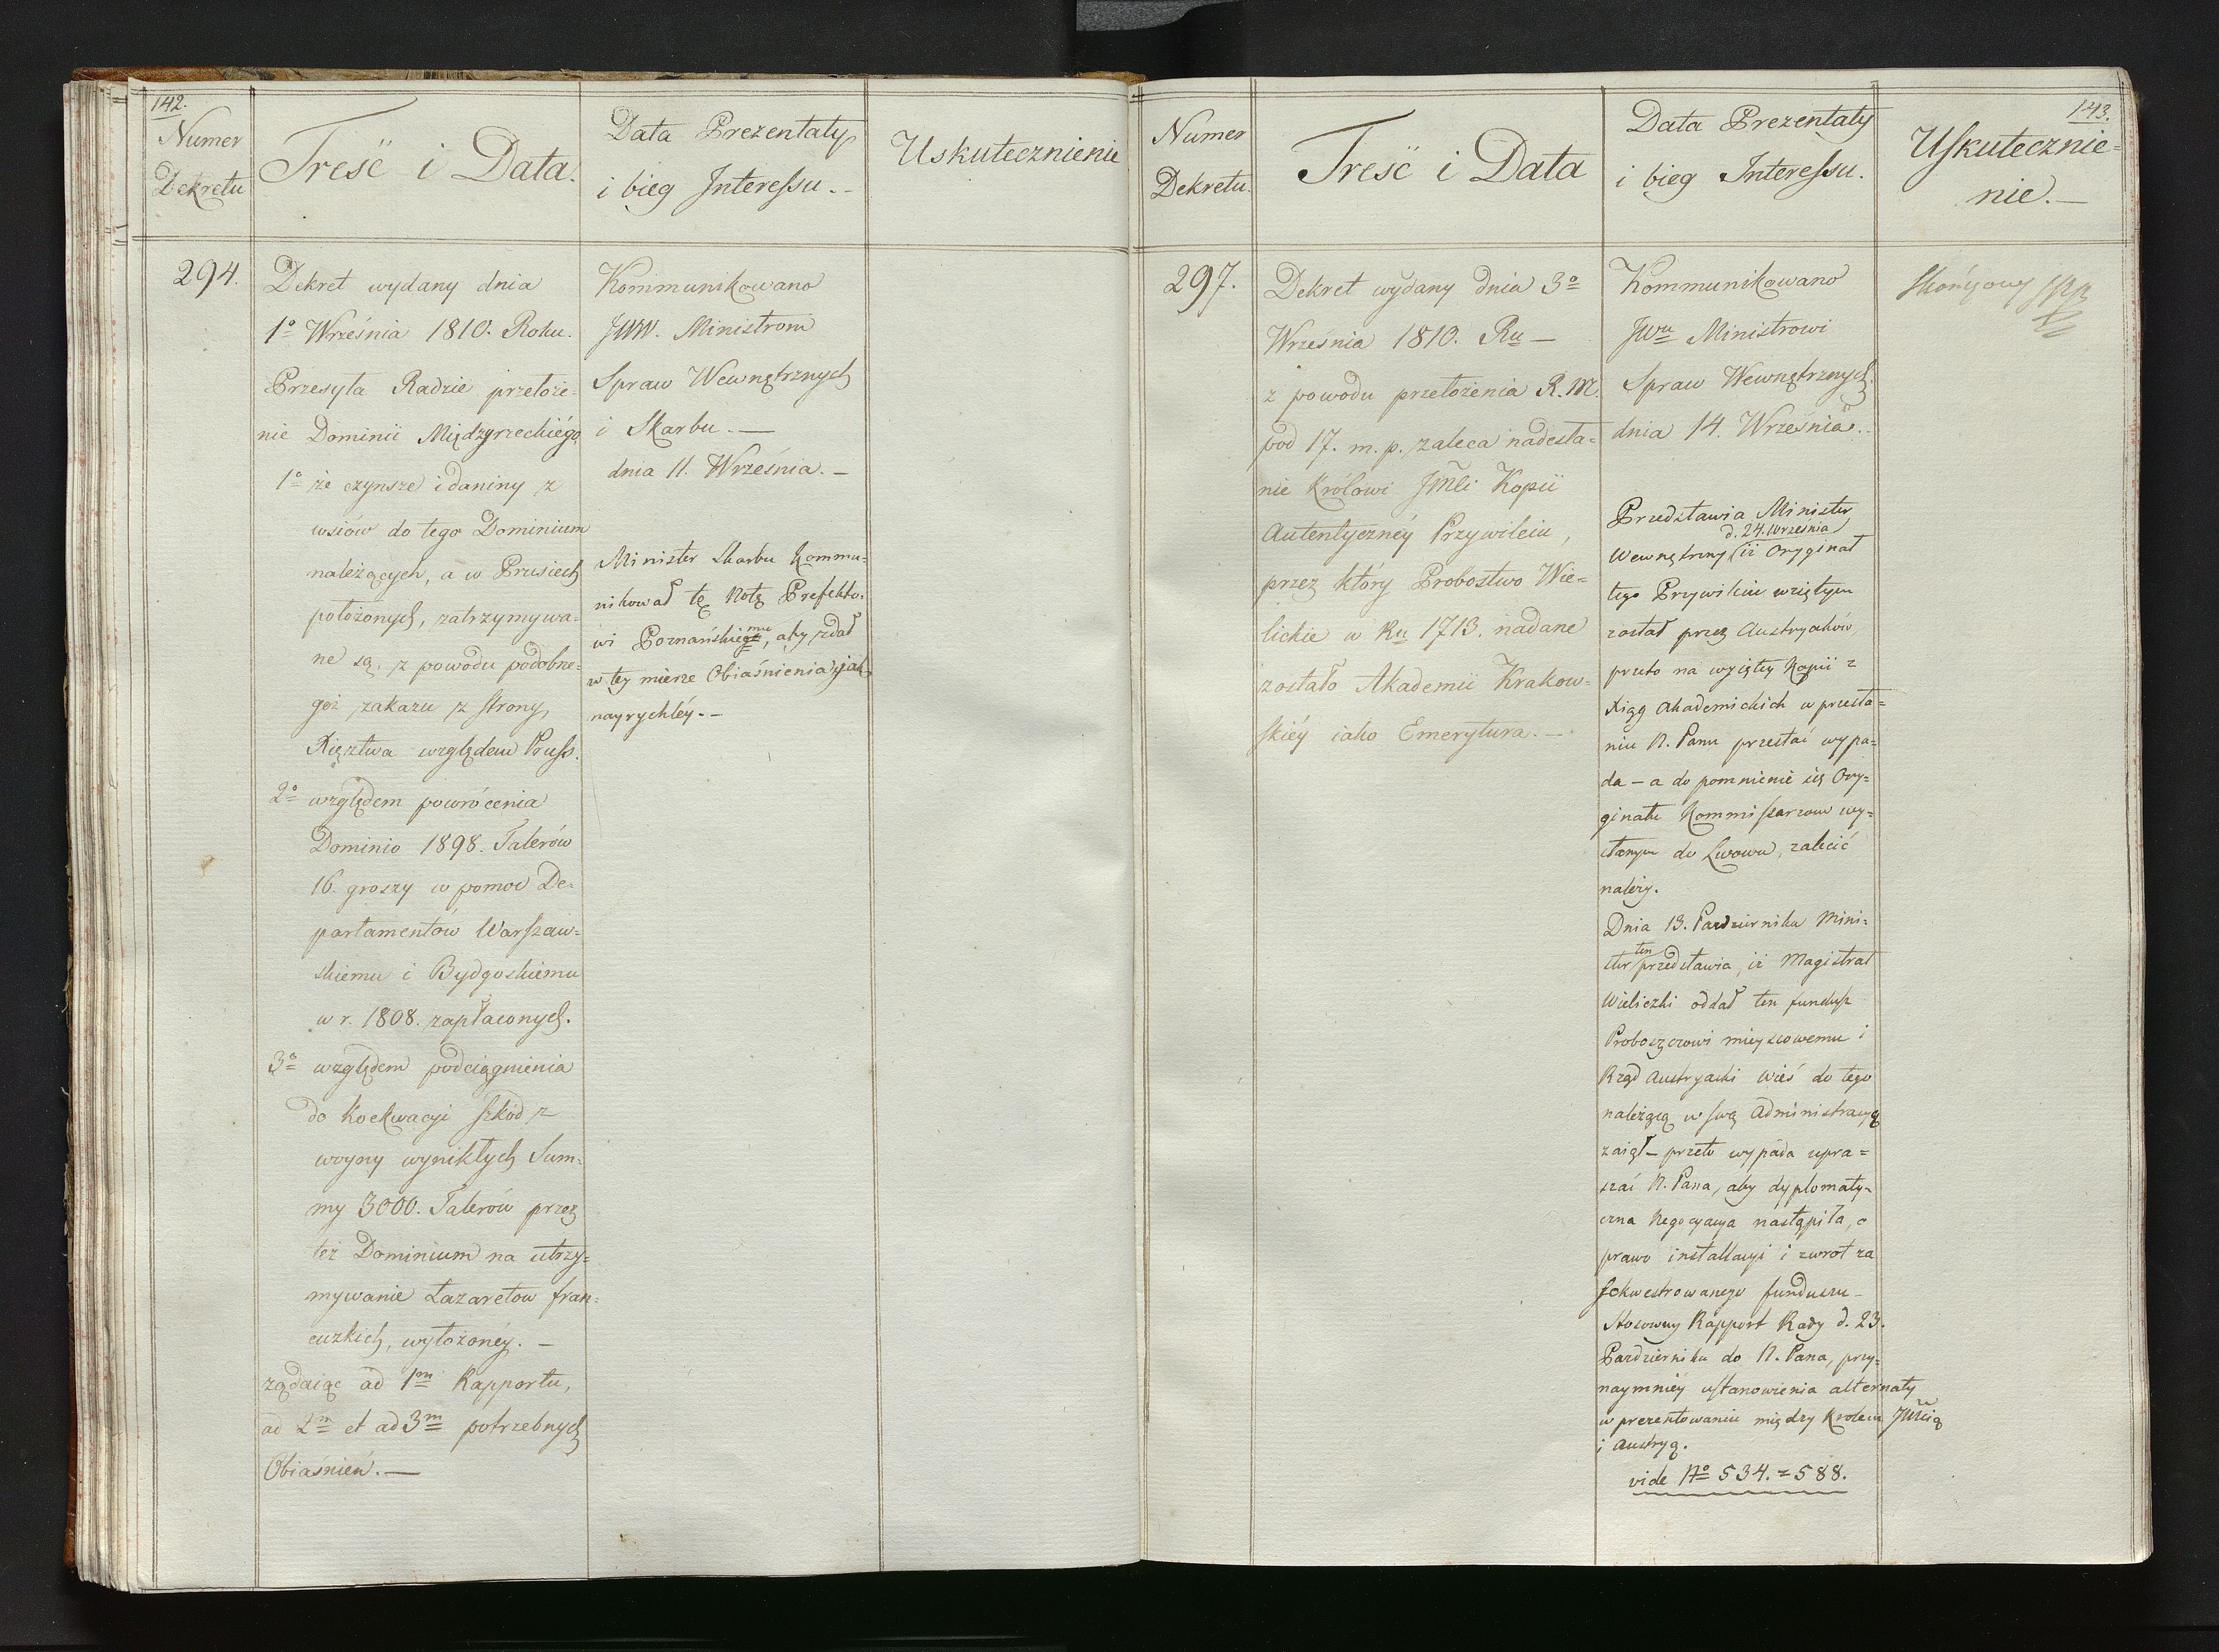 142.
Numer
Dekretu
Treść i Data.
Data Prezentaty
i bieg Interessu. -
Uskutecznienie
294.
Dekret wydany dnia
1o Września 1810. Roku.
Przesyła Radzie przełoże-
nie Dominii Międzyrzeckiégo
1o że czynsze i daniny z
wsiów do tego Dominium
należących, a w Prusiech
położonych, zatrzymywa-
ne są, z powodu podobne-
goż zakazu z strony
Xięztwa względem Pruss.
2o względem powrócenia
Dominio 1898. Talerów
16. groszy w pomoc De-
partamentów Warszaw-
skiemu i Bydgoskiemu
w r. 1808. zapłaconych.
3o względem podciągnienia
do Koekwacyi szkód z
woyny wynikłych Sum-
my 3000. Talerów przez
też Dominium na utrzy-
mywanie Lazaretow fran-
cuzkich, wyłożonéy. -
żądaiąc ad 1m Rapportu,
ad 2m et ad 3m potrzebnych
Obiaśnień. —
Kommunikowano
JWW. Ministrom
Spraw Wewnętrznych
i Skarbu. —
dnia 11. Września. -
Minister Skarbu Kommu-
nikował tę Notę Prefekto-
wi Poznańskiemu, aby zdał
w tey mierze Obiaśnienia jak
nayrychléy. -
143.
Numer
Dekretu.
Treść i Data
Data Prezentaty
i bieg Interessu.
Uskutecznie-
nie. -
297.
Dekret wydany dnia 3o
Września 1810. Ru —
z powodu przełożenia R. M.
pod 17. m. p. zaleca nadesła-
nie Królowi JMci Kopii
Autentycznéy Przywileiu,
przez który Probostwo Wie-
lickie w Ru 1713. nadane
zostało Akademii Krakow-
skiéy iako Emerytura. -
Kommunikowano
JWu Ministrowi
Spraw Wewnętrznych
dnia 14. Września. -
Przedstawia Minister
d. 24. Września
Wewnętrzny iż Oryginał
tego Przywileiu wziętym
został przez Austryaków,
przeto na wyiętey Kopii z
Xiąg Akademickich w przesła-
niu N. Panu przestać wypa-
da - a dopomnienie się Ory-
ginału Kommissarzom wy-
słanym do Lwowa, zalecić
należy.
Dnia 13. Pazdziernika Mini-
ster ten przedstawia, iż Magistrat
Wieliczki oddał ten fundusz
Proboszczowi mieyscowemu i
Rząd Austryacki Wieś do tego
należącą w swą Administracyą
zaiął - przeto wypada upra-
szać N. Pana, aby dyplomaty-
czna Negocyacya nastąpiła, o
prawo installacyi i zwrot za
sekwestrowanego funduszu -
Stosowny Rapport Rady d. 23.
Pazdziernika do N. Pana, przy-
naymniéy ustanowienia alternaty
w prezentowaniu między Krolem JMcią
i Austryą.
vide No 534. = 588.
Skończony